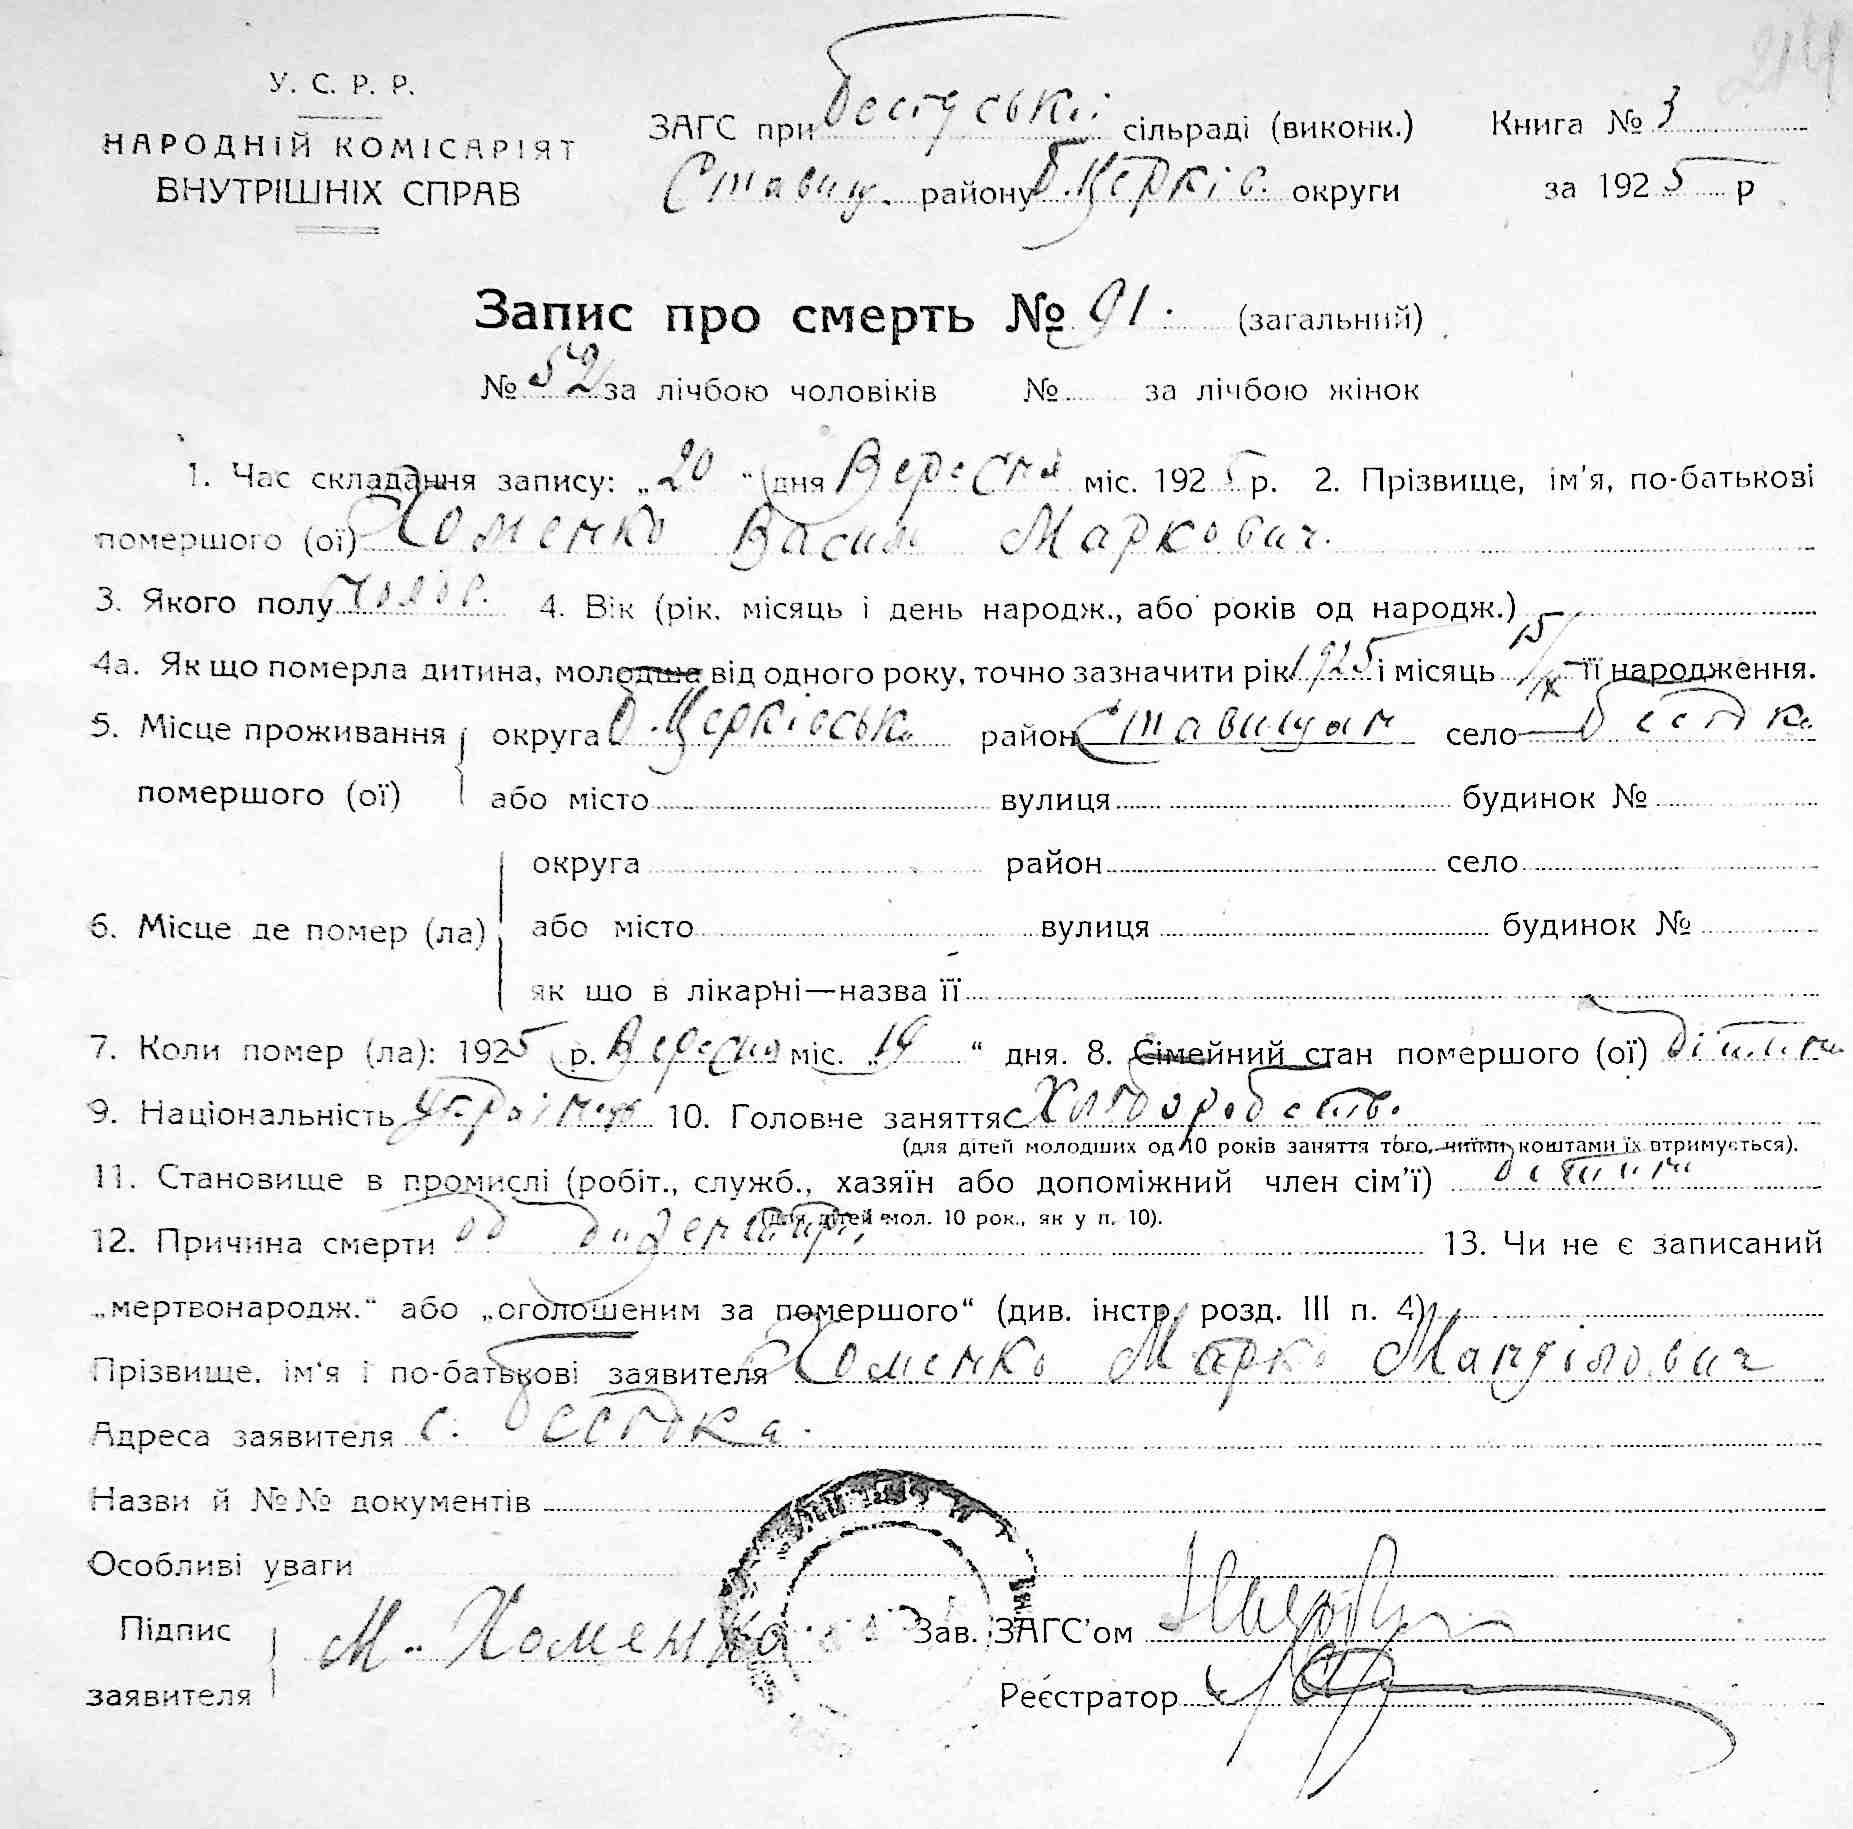 214
У. С. Р. Р.
НАРОДНІЙ КОМІСАРІЯТ
ВНУТРІШНІХ СПРАВ
ЗАГС при сільраді (виконк.) Книга № 3
Ставищ. району Б. Церків. округи за 1925 р
Запис про смерть № 91. (загальний)
№ 52 за лічбою чоловіків № за лічбою жінок
1. Час складання запису: „20“ дня Вересня міс. 1925 р. 2. Прізвище, ім'я, по-батькові
помершого (ої) Хоменко Василь Маркович.
3. Якого полу чолов. 4. Вік (рік, місяць і день народж., або років од народж.)
4а. Як що померла дитина, молодша від одного року, точно зазначити рік 1925 і місяць 15/IX її народження.
5. Місце проживання помершого (ої) округа Б. Церківськ. район село
або місто вулиця будинок №
6. Місце де помер (ла) округа район село
або місто вулиця будинок №
як що в лікарні—назва її
7. Коли помер (ла): 1925 р. Вересня міс. „19“ дня. 8. Сімейний стан помершого (ої)
9. Національність 10. Головне заняття Хліборобство
(для дітей молодших од 10 років заняття того, чиїми коштами їх втримується).
11. Становище в промислі (робіт., служб., хазяїн або допоміжний член сім'ї)
(для дітей мол. 10 рок., як у п. 10).
12. Причина смерти од дизентерії 13. Чи не є записаний
„мертвонародж.“ або „оголошеним за помершого“ (див. інстр. розд. III п. 4)
Прізвище, ім'я і по-батькові заявителя Хоменко Марко
Адреса заявителя с.
Назви й №№ документів
Особливі уваги
Підпис заявителя М. Хоменко Зав. ЗАГС'ом
Реєстратор